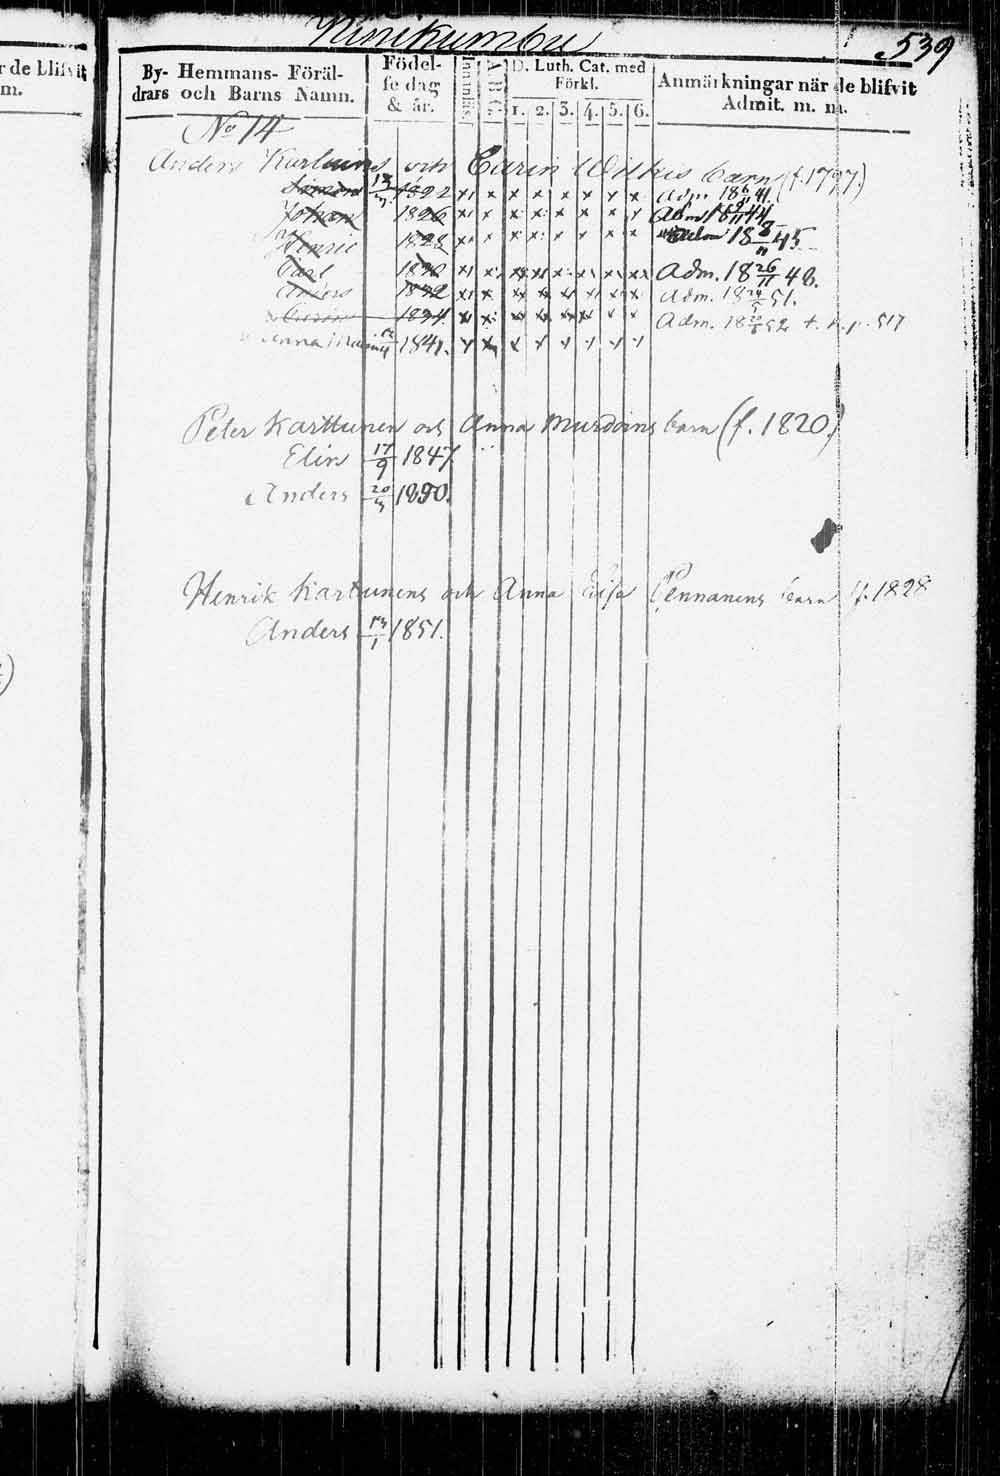 539
r de blifvit
m.
By- Hemmans- Föräl-
drars och Barns Namn.
Födel-
se dag
& år.
Innanläs.
A B C
D. Luth. Cat. med
Förkl.
1. 2. 3. 4. 5. 6.
Anmärkningar när de blifvit
Admit. m. m.
No 14
Anders och Carin barn (f. 1797.)
Simon 1822 x x x x x x x x adm. 18 6/11 41.
Johan 1826 x x x x x x x x Adm 18 44
Henric 1828 x x x x x x x x 18 8/11 45
Carl 1830 x x x x x x x x Adm. 18 26/11 48.
Anders 1832 x x x x x x x x Adm. 18 51.
1834 x x x x x x x x Adm. 18 52 p. 517
Anna 1841. x x x x x x x x
Peter Karttunen och Anna Murdoins barn (f. 1820)
Elin 17/9 1847
Anders 1850.
Henrik Kartunens och Anna Lisa Pennanens barn (f. 1828
Anders 1851.